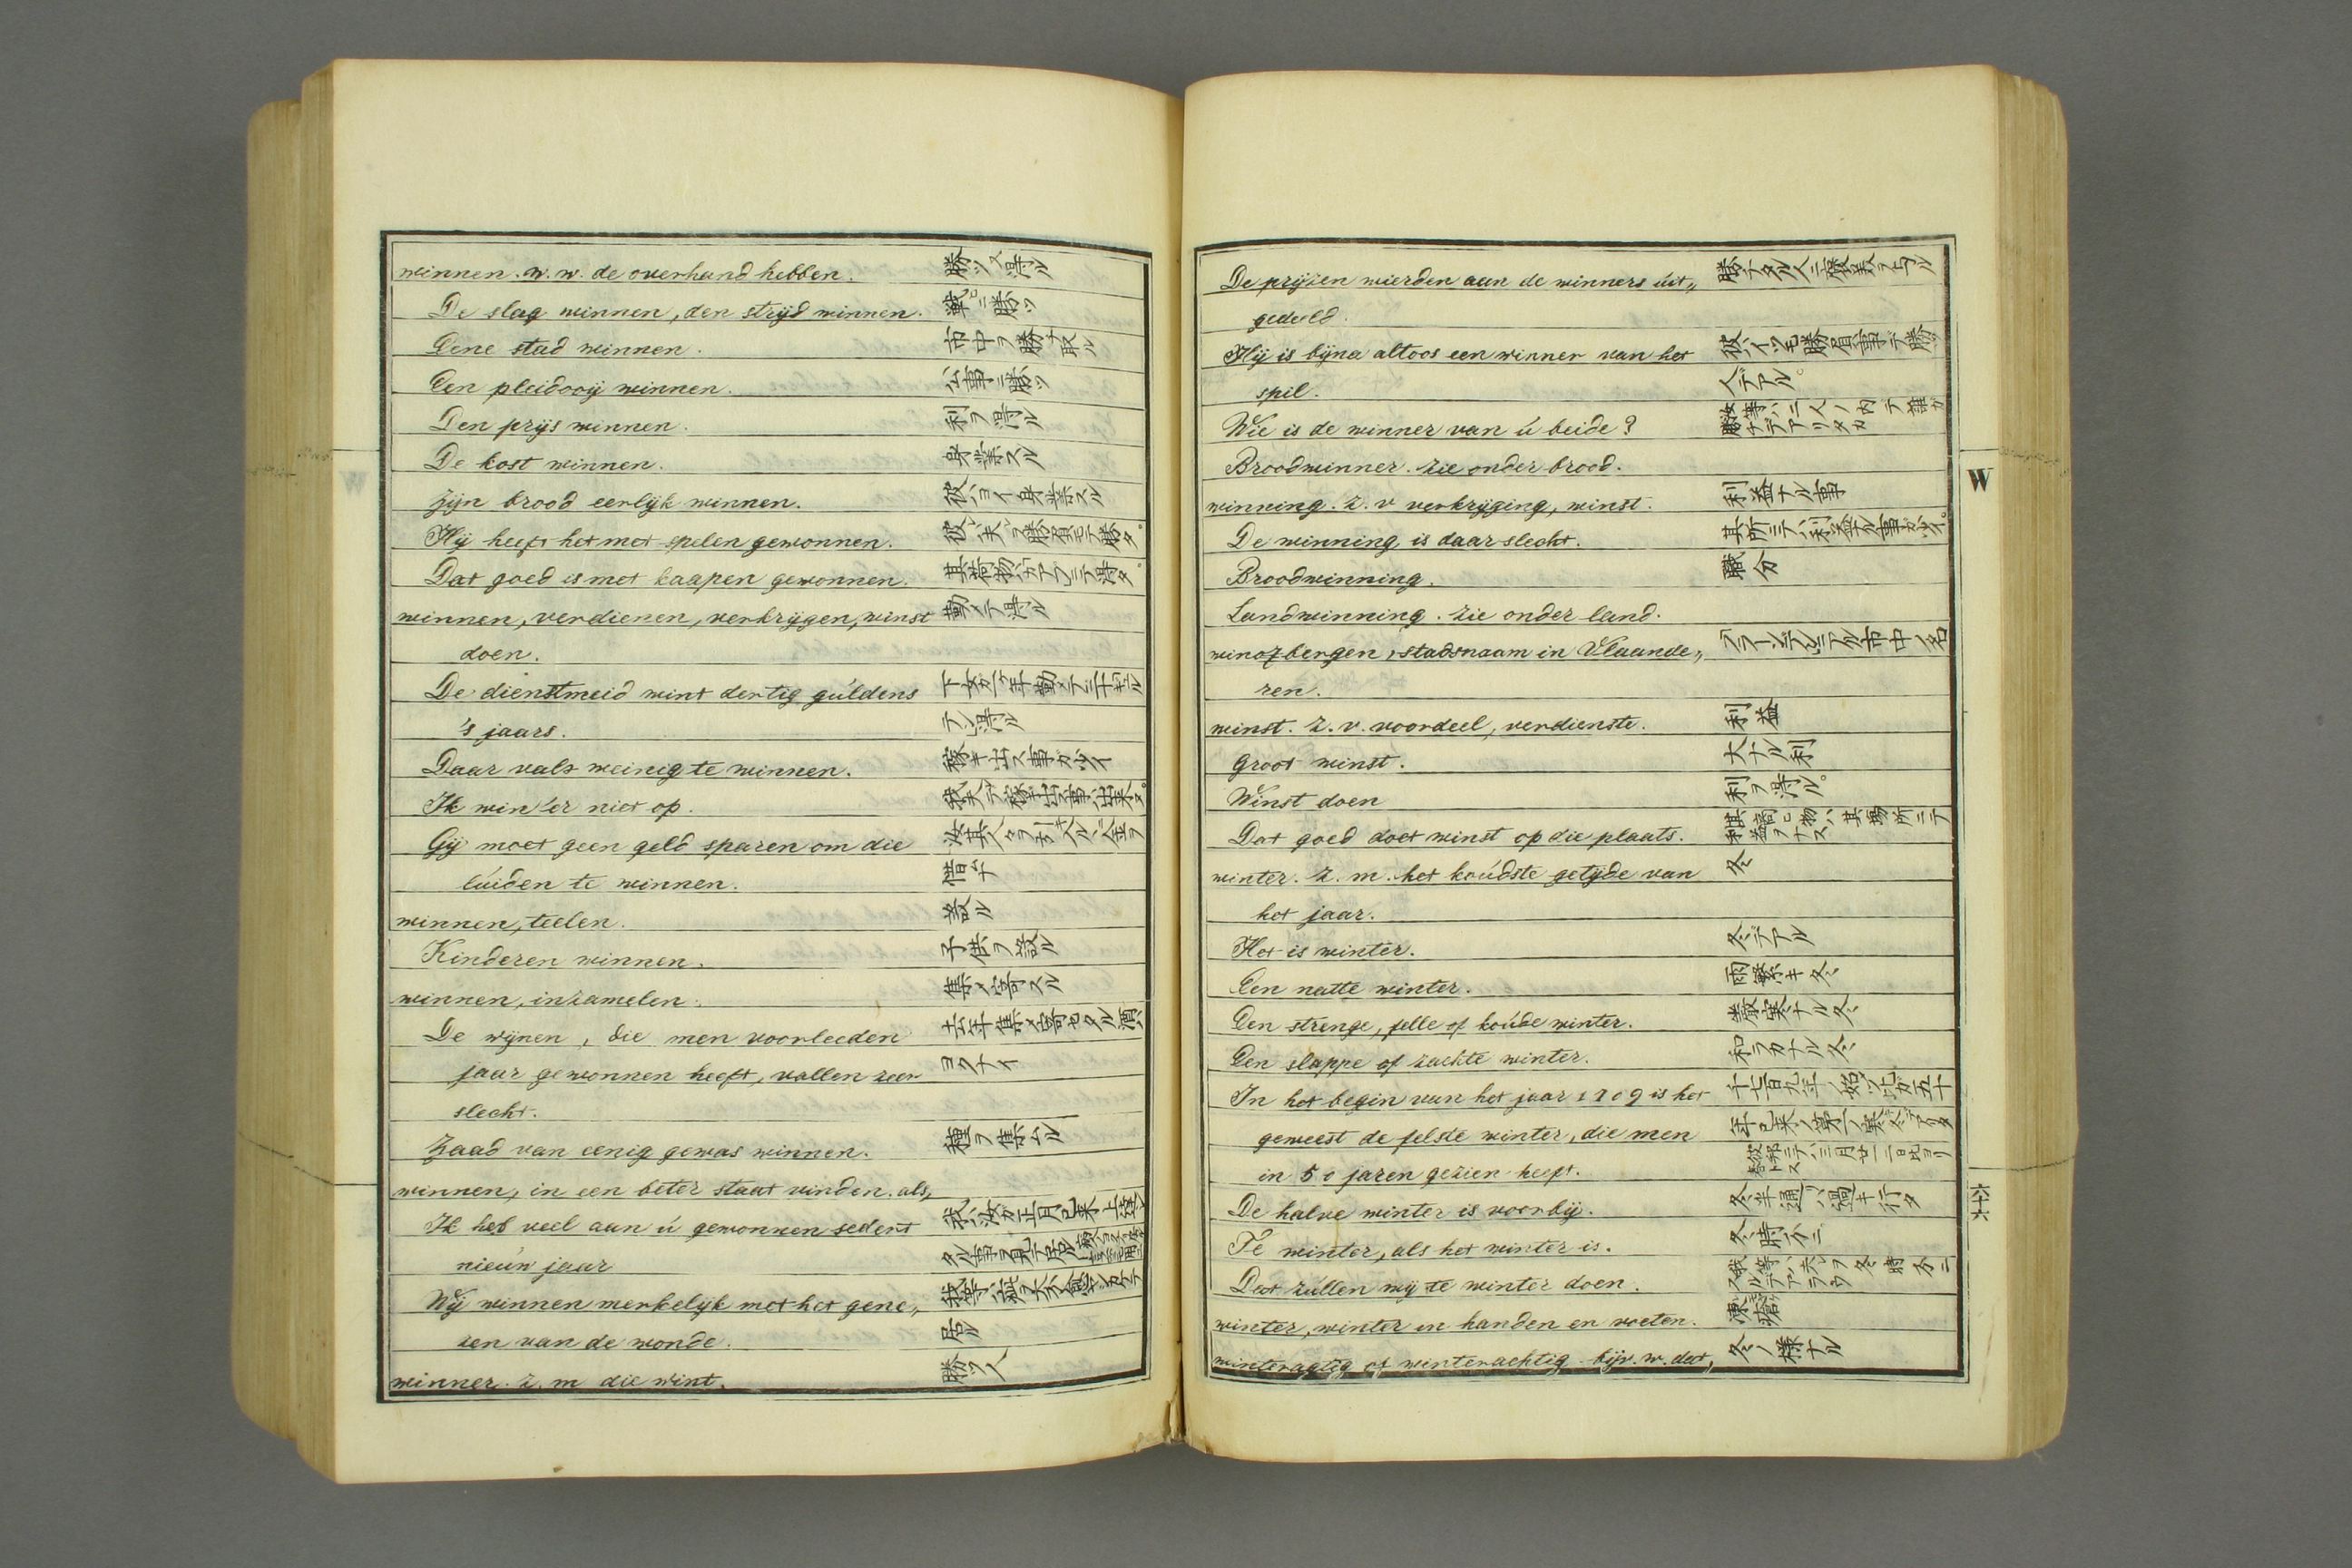 winnen. w. w. de overhand hebben. 勝ツ、得ル
De slag winnen, den strijd winnen. 戦ニ勝ツ
Eene stad winnen. 市中ヲ勝チ取ル
Een pleidooij winnen. 公事ニ勝ツ
Den prijs winnen. 利ヲ得ル
De kost winnen. 身業スル
Zijn brood eerlijk winnen. 彼ハヨイ身業スル
Hij heeft het met spelen gewonnen. 彼ハ夫ヲ勝負ニテ勝タ。
Dat goed is met kaapen gewonnen.
winnen, verdienen, verkrijgen, winst 勤メテ得ル
doen.
De dienstmeid wint dertig gúldens
's jaars. テン得ル
Daar valt weinig te winnen. 稼キ出ス事ガ少イ
Ik win 'er niet op.
Gij moet geen geld sparen om die
lúiden te winnen.
winnen, teelen. 設ル
Kinderen winnen. 子供ヲ設ル
winnen, inzamelen. 集メ寄スル
De wijnen, die men voorleeden 去年集メ寄セタル酒ハ
jaar gewonnen heeft, vallen zeer ヨクナイ
slecht.
Zaad van eenig gewas winnen. 種ヲ集ムル
winnen, in een beter staat vinden. als,
Ik heb veel aan ú gewonnen sedert
nieúw jaar
Wij winnen merkelijk met het gene„
zen van de wonde. 居ル
winner. z. m die wint. 勝ツ人
De prijzen wierden aan de winners úit„ 勝チタル人ニ褒美ヲ与ル
gedeeld.
Hij is bijna altoos een winner van het 彼ハイツモ勝負事ニテ勝
spil. 人デアル。
Wie is de winner van ú beide? 汝等ハ二人ノ内テ誰ガ勝チテアリタカ
Broodwinner. zie onder brood.
winning. z. v verkrijging, winst. 利益ナル事
De winning is daar slecht. 其所ニテハ利益ナル事ガ少イ。
Broodwinning. 職分
Landwinning. zie onder land.
winoxbergen, stadsnaam in Vlaande„
ren.
winst. z. v. voordeel, verdienste. 利益
Groot winst. 大ナル利
Winst doen 利ヲ得ル。
Dat goed doet winst op die plaats. 其商ヒ物ハ其場所ニテ利益ヲナス
winter. z. m. het koúdste getijde van 冬
het jaar.
Het is winter. 冬デアル
Een natte winter. 雨繁キ冬
Een strenge, felle of koúde winter. 嚴寒ナル冬
Een slappe of zachte winter. 和ラカナル冬
In het begin van het jaar 1709 is het 千七百九年ノ始メ比ガ五十
geweest de felste winter, die men 年已来ノ第一ノ寒冬デアリタ
in 50 jaren gezien heeft.
De halve winter is voorbij. 冬半通リハ過キ行タ
Te winter, als het winter is. 冬時分ニ
Dat zúllen wij te winter doen. 我等ハ夫ヲ冬時分ニスルデアラウ
winter, winter in handen en voeten. 凍瘡
winteragtig of winterachtig. bijv. w. dat, 冬ノ様ナル
W